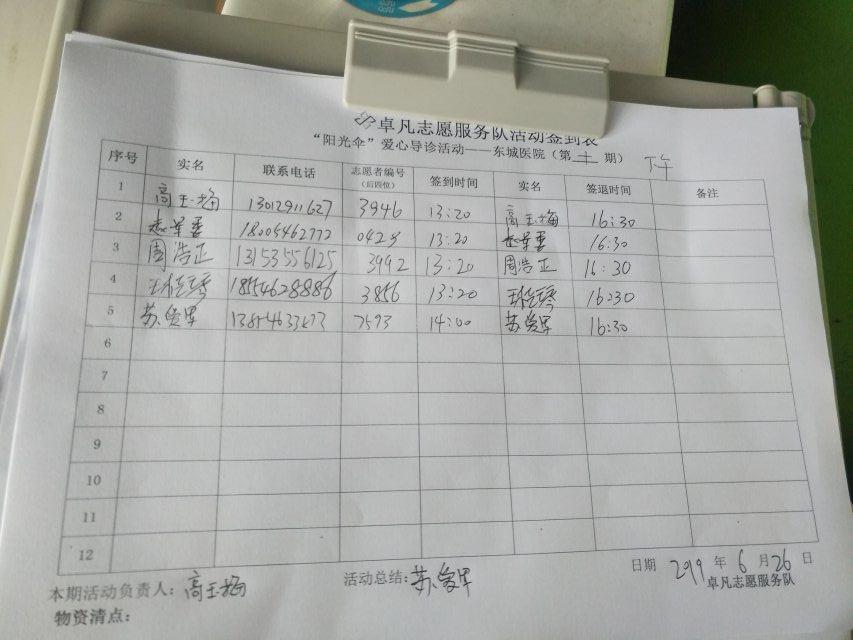 卓凡志愿服务队活动签到表
“阳光伞”爱心导诊活动——东城医院（第 十 期） 下午
序号 实名 联系电话 志愿者编号（后四位） 签到时间 实名 签退时间 备注
1 高玉梅 13012911627 3946 13:20 高玉梅 16:30
2 18005462772 0428 13:20 16:30
3 周浩正 13153556125 3992 13:20 周浩正 16:30
4 18554628886 3856 13:20 16:30
5 苏爱军 7593 14:00 苏爱军 16:30
6
7
8
9
10
11
12
本期活动负责人：高玉梅 活动总结：苏爱军 日期 2019 年 6 月 26 日
物资清点： 卓凡志愿服务队